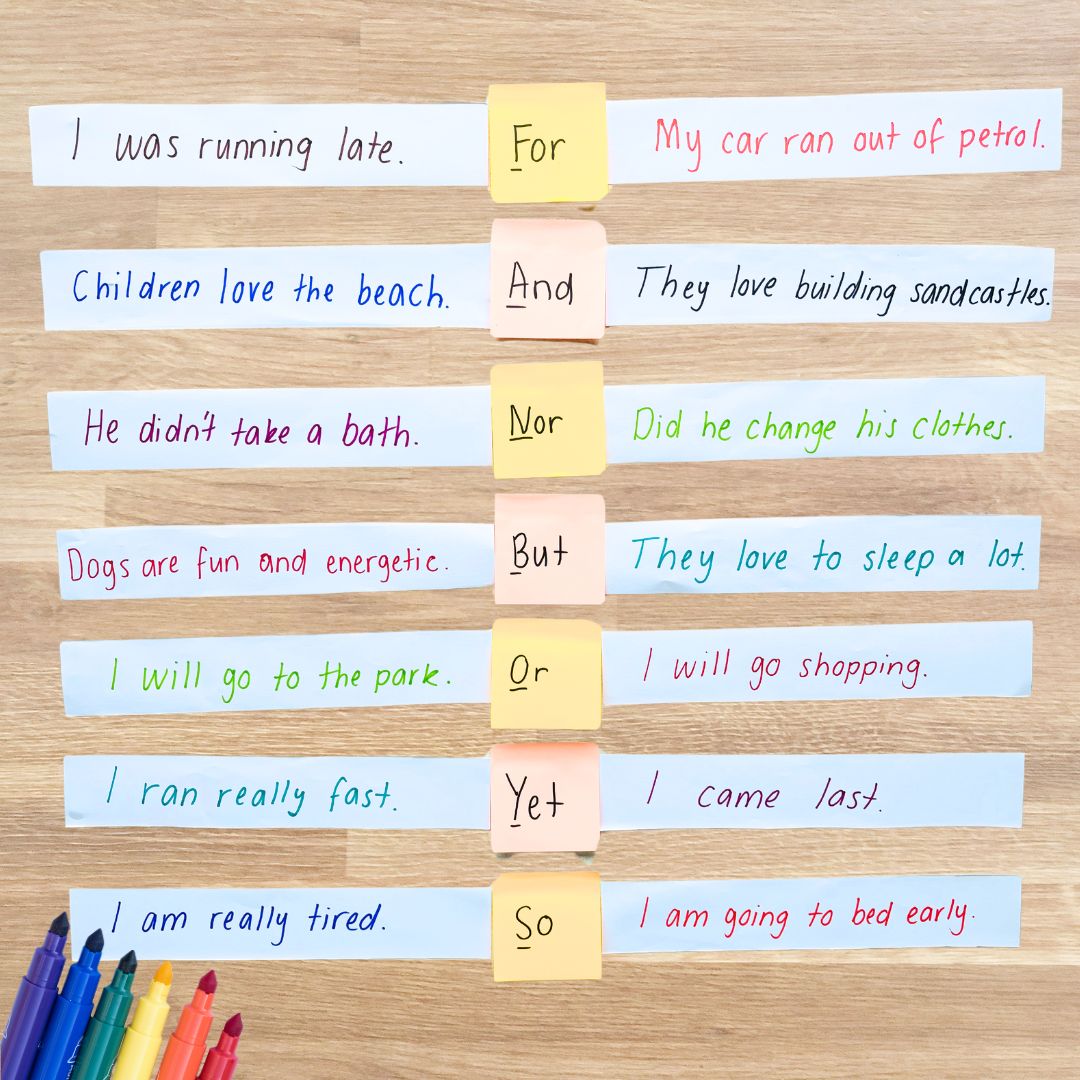 I was running late. For My car ran out of petrol.
Children love the beach. And They love building sandcastles.
He didn't take a bath. Nor Did he change his clothes.
Dogs are fun and energetic. But They love to sleep a lot.
I will go to the park. Or I will go shopping.
I ran really fast. Yet I came last.
I am really tired. So I am going to bed early.